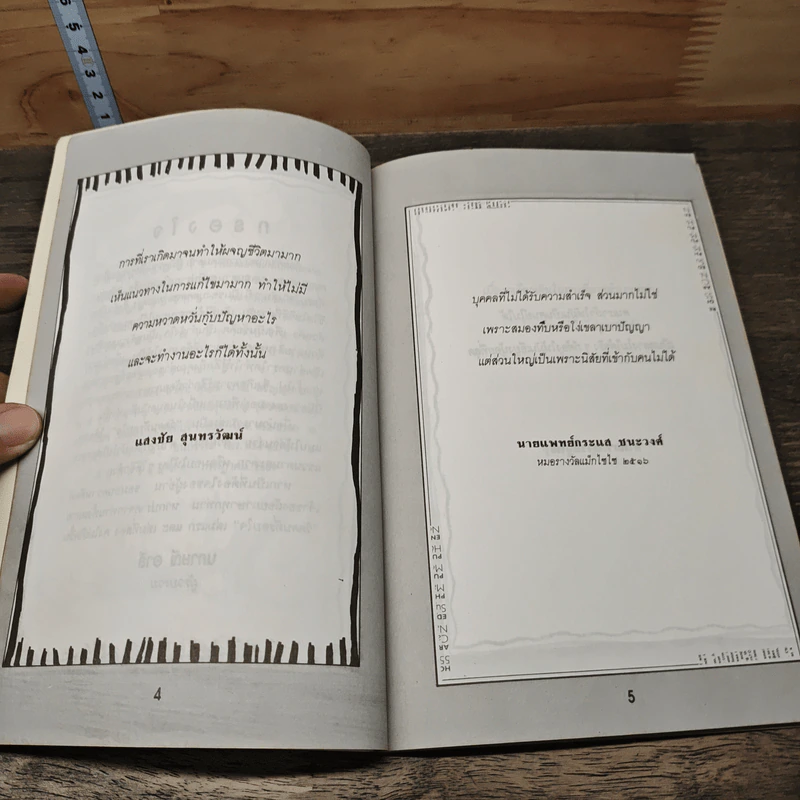 การที่เราเกิดมาจนทำให้ผจญชีวิตมามาก
เห็นแนวทางในการแก้ไขมามาก ทำให้ไม่มี
ความหวาดหวั่นกับปัญหาอะไร
และจะทำงานอะไรก็ได้ทั้งนั้น
แสงชัย สุนทรวัฒน์
4
บุคคลที่ไม่ได้รับความสำเร็จ ส่วนมากไม่ใช่
เพราะสมองทึบหรือโง่เขลาเบาปัญญา
แต่ส่วนใหญ่เป็นเพราะนิสัยที่เข้ากับคนไม่ได้
นายแพทย์กระแส ชนะวงศ์
หมอรางวัลแม็กไซไซ ๒๕๑๖
5
5
5
4
3
2
1